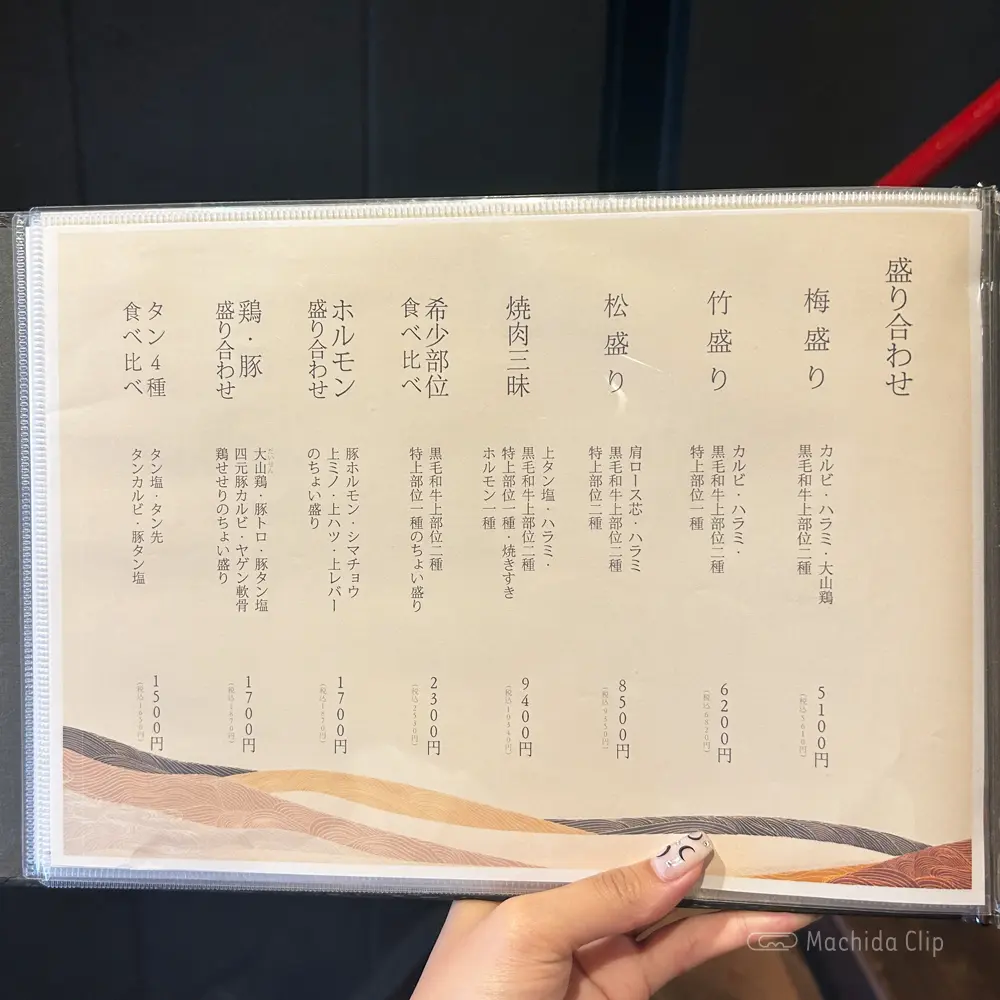 盛り合わせ
梅盛り
カルビ・ハラミ・大山鶏
黒毛和牛上部位二種
5100円
(税込5610円)
竹盛り
カルビ・ハラミ・
黒毛和牛上部位二種
特上部位一種
6200円
(税込6820円)
松盛り
肩ロース芯・ハラミ
黒毛和牛上部位二種
特上部位二種
8500円
(税込9350円)
焼肉三昧
上タン塩・ハラミ・
黒毛和牛上部位二種
特上部位一種・焼きすき
ホルモン一種
9400円
(税込10340円)
希少部位
食べ比べ
黒毛和牛上部位二種
特上部位一種のちょい盛り
2300円
(税込2530円)
ホルモン
盛り合わせ
豚ホルモン・シマチョウ
上ミノ・上ハツ・上レバー
のちょい盛り
1700円
(税込1870円)
鶏・豚
盛り合わせ
大山鶏・豚トロ・豚タン塩
四元豚カルビ・ヤゲン軟骨
鶏せせりのちょい盛り
1700円
(税込1870円)
タン4種
食べ比べ
タン塩・タン先
タンカルビ・豚タン塩
1500円
(税込1650円)
Machida Clip